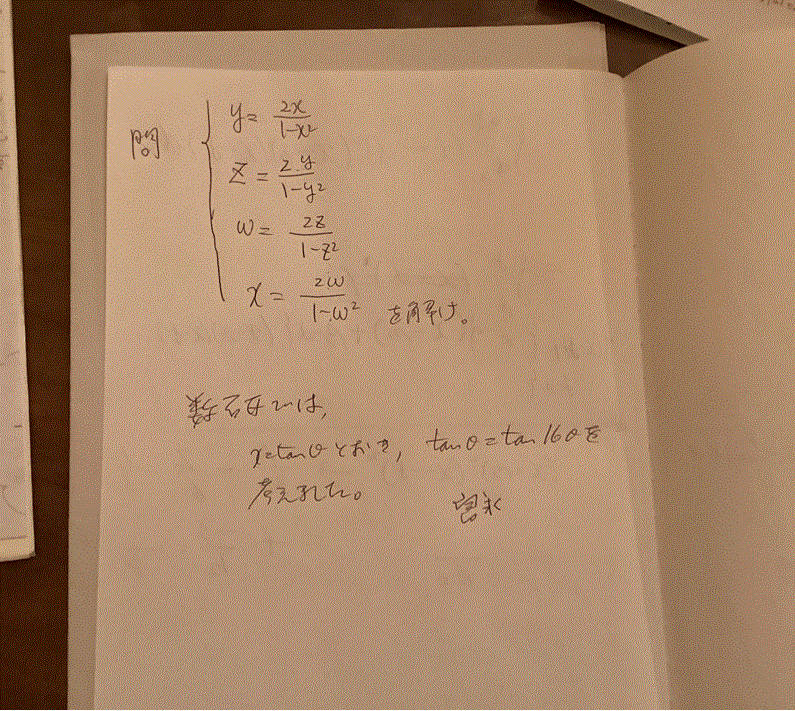 問
y = 2x/(1-x²)
z = 2y/(1-y²)
w = 2z/(1-z²)
x = 2w/(1-w²) を解け。
x=tanθとおき, tanθ=tan16θを